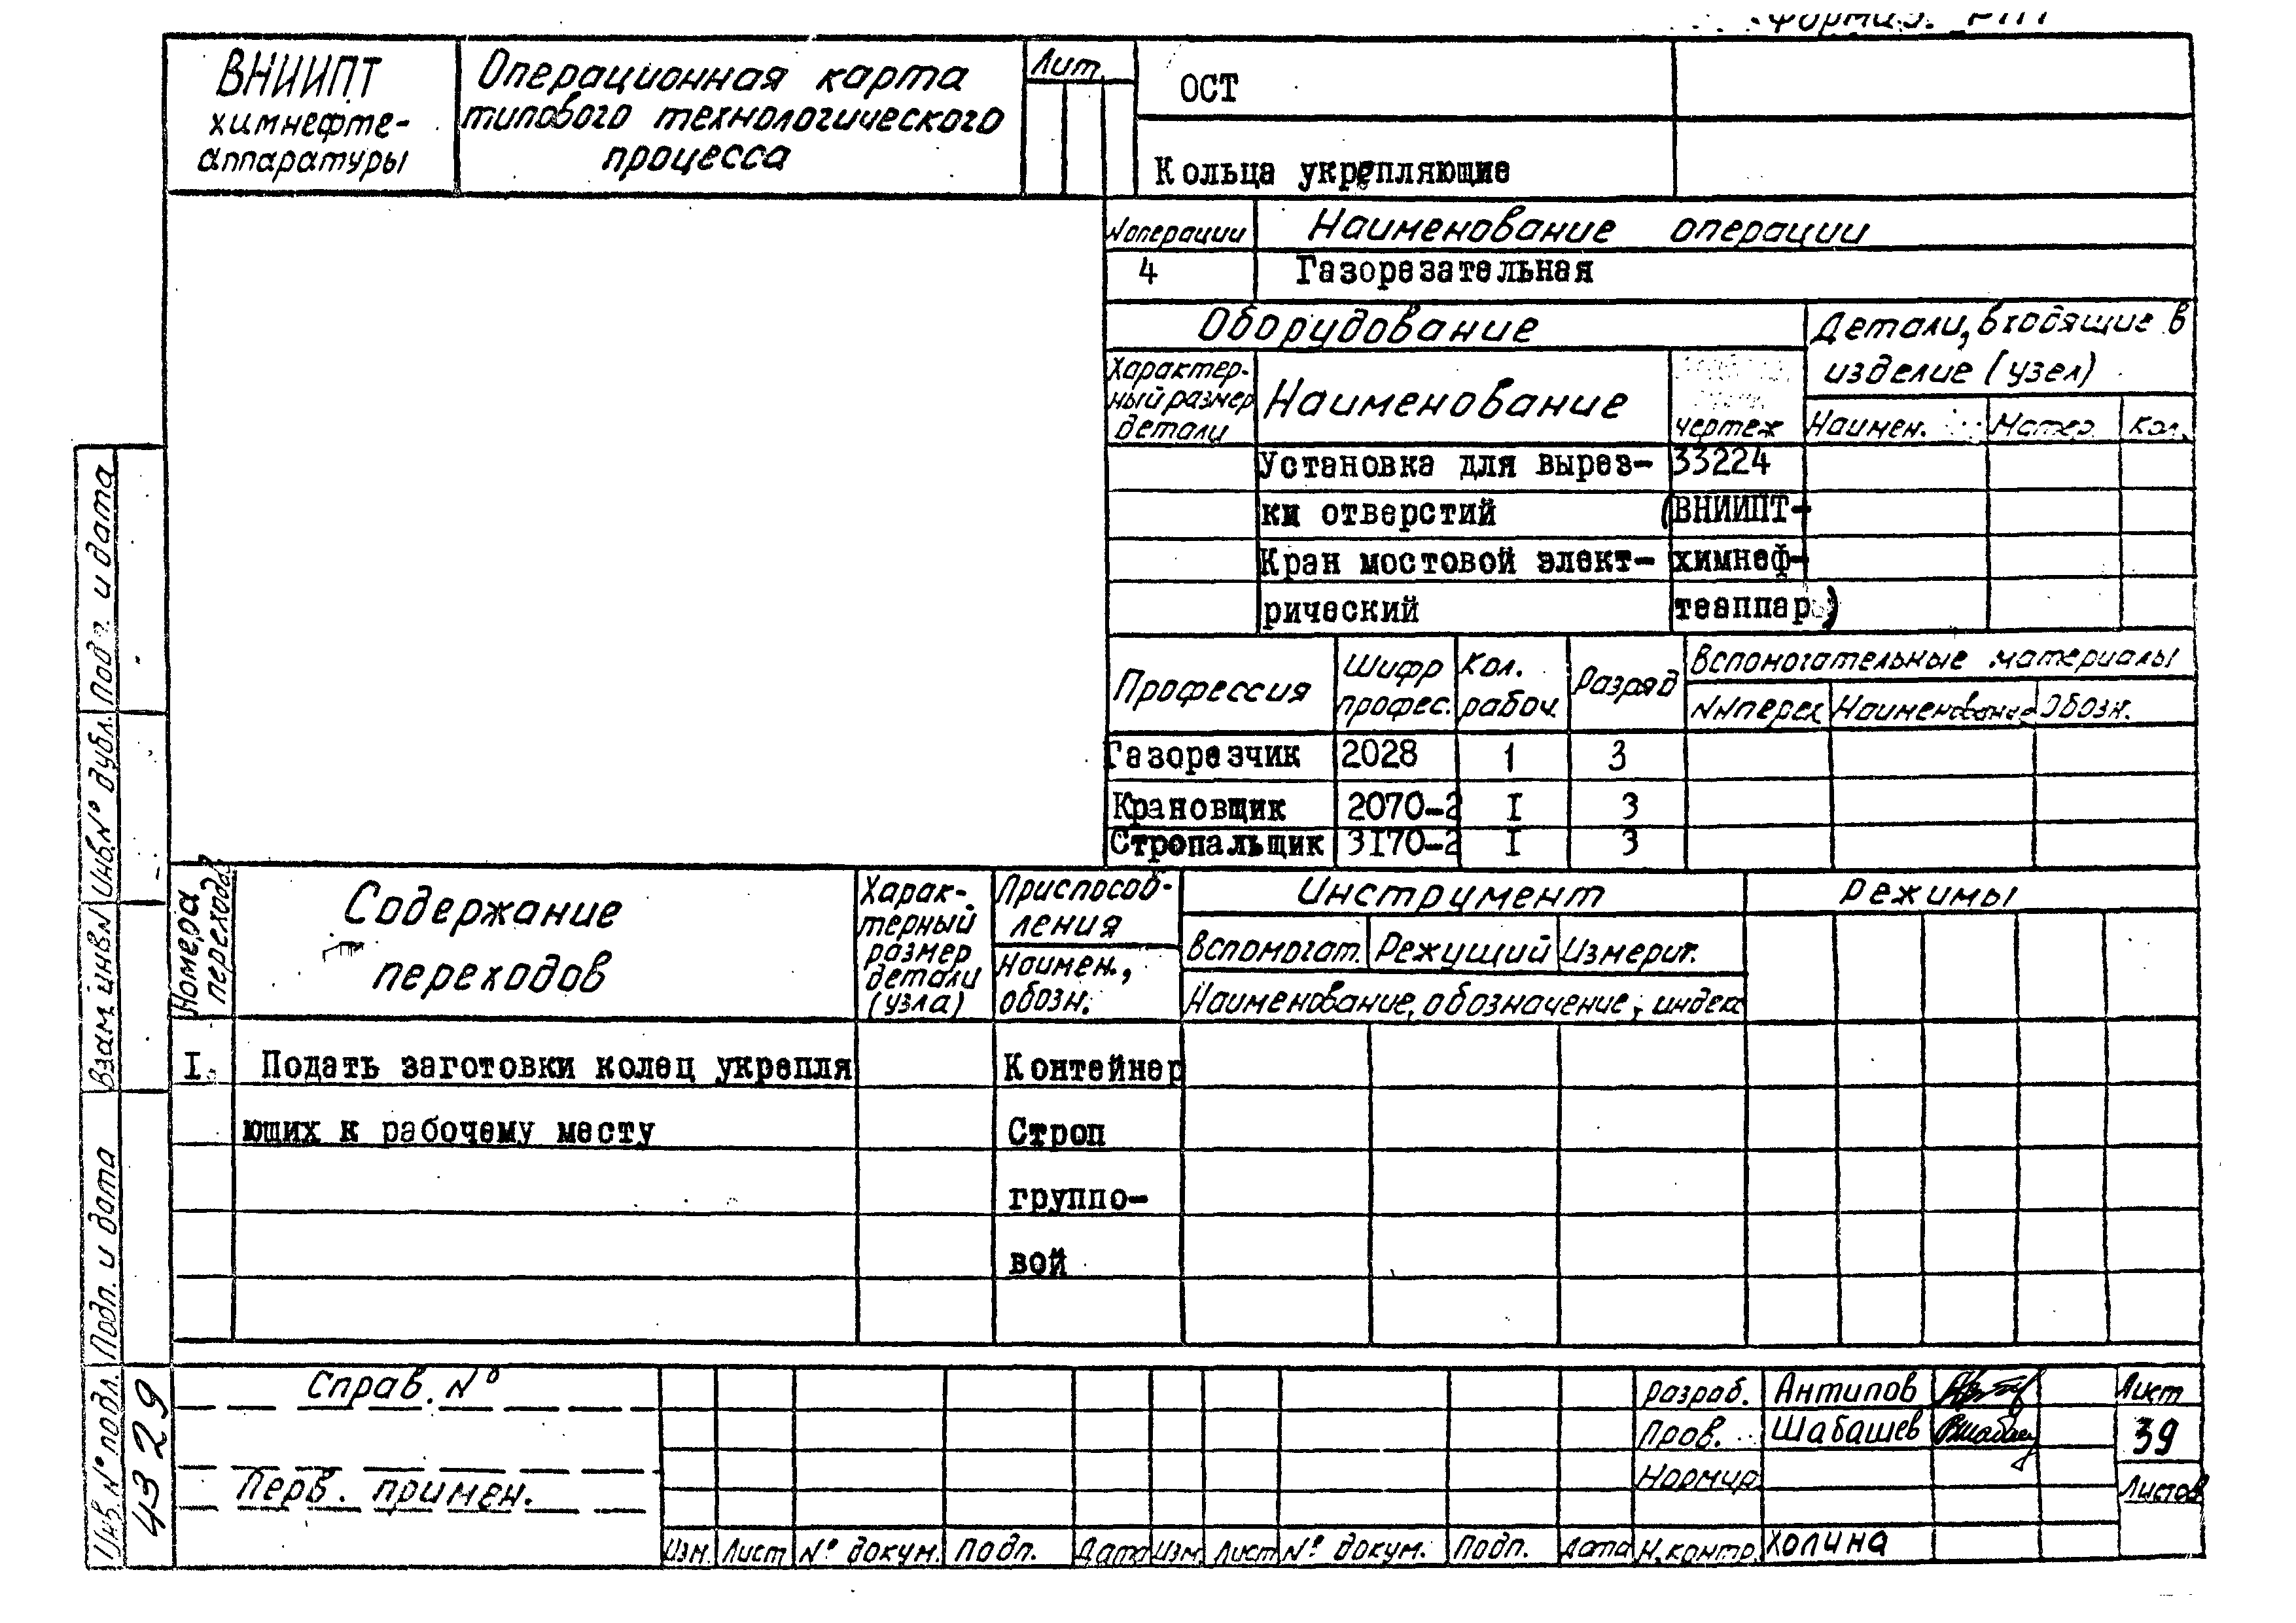 ВНИИПТ
химнефте-
аппаратуры
Операционная карта
типового технологического
процесса
Лит.
ОСТ
Кольца укрепляющие
N операции
Наименование операции
4
Газорезательная
Оборудование
Детали, входящие в
изделие (узел)
Характер-
ный размер
детали
Наименование
чертеж
Наимен.
Матер.
Кол.
Установка для вырез-
33224
ки отверстий
(ВНИИПТ-
Кран мостовой элект-
химнеф-
рический
теаппар.)
Профессия
Шифр
профес.
Кол.
рабоч.
Разряд
Вспомогательные материалы
NN перех
Наименование
Обозн.
Газорезчик 2028 1 3
Крановщик 2070-2 I 3
Стропальщик 3I70-2 I 3
Номера
переходов
Содержание
переходов
Харак-
терный
размер
детали
(узла)
Приспособ-
ления
Наимен.,
обозн.
Инструмент
Вспомогат. Режущий Измерит.
Наименование, обозначение, индекс
Режимы
I. Подать заготовки колец укрепля
Контейнер
ющих к рабочему месту
Строп
группо-
вой
Справ. N°
Перв. примен.
Изм. Лист N° докум. Подп. Дата Изм Лист N° докум. Подп. Дата
Разраб. Антипов
Пров. Шабашев
Нормир.
Н.контр. Холина
Лист
39
Листов
Подп. и дата
Инв.N° дубл.
Взам. инв N
Подп. и дата
Инв. N° подл.
4329